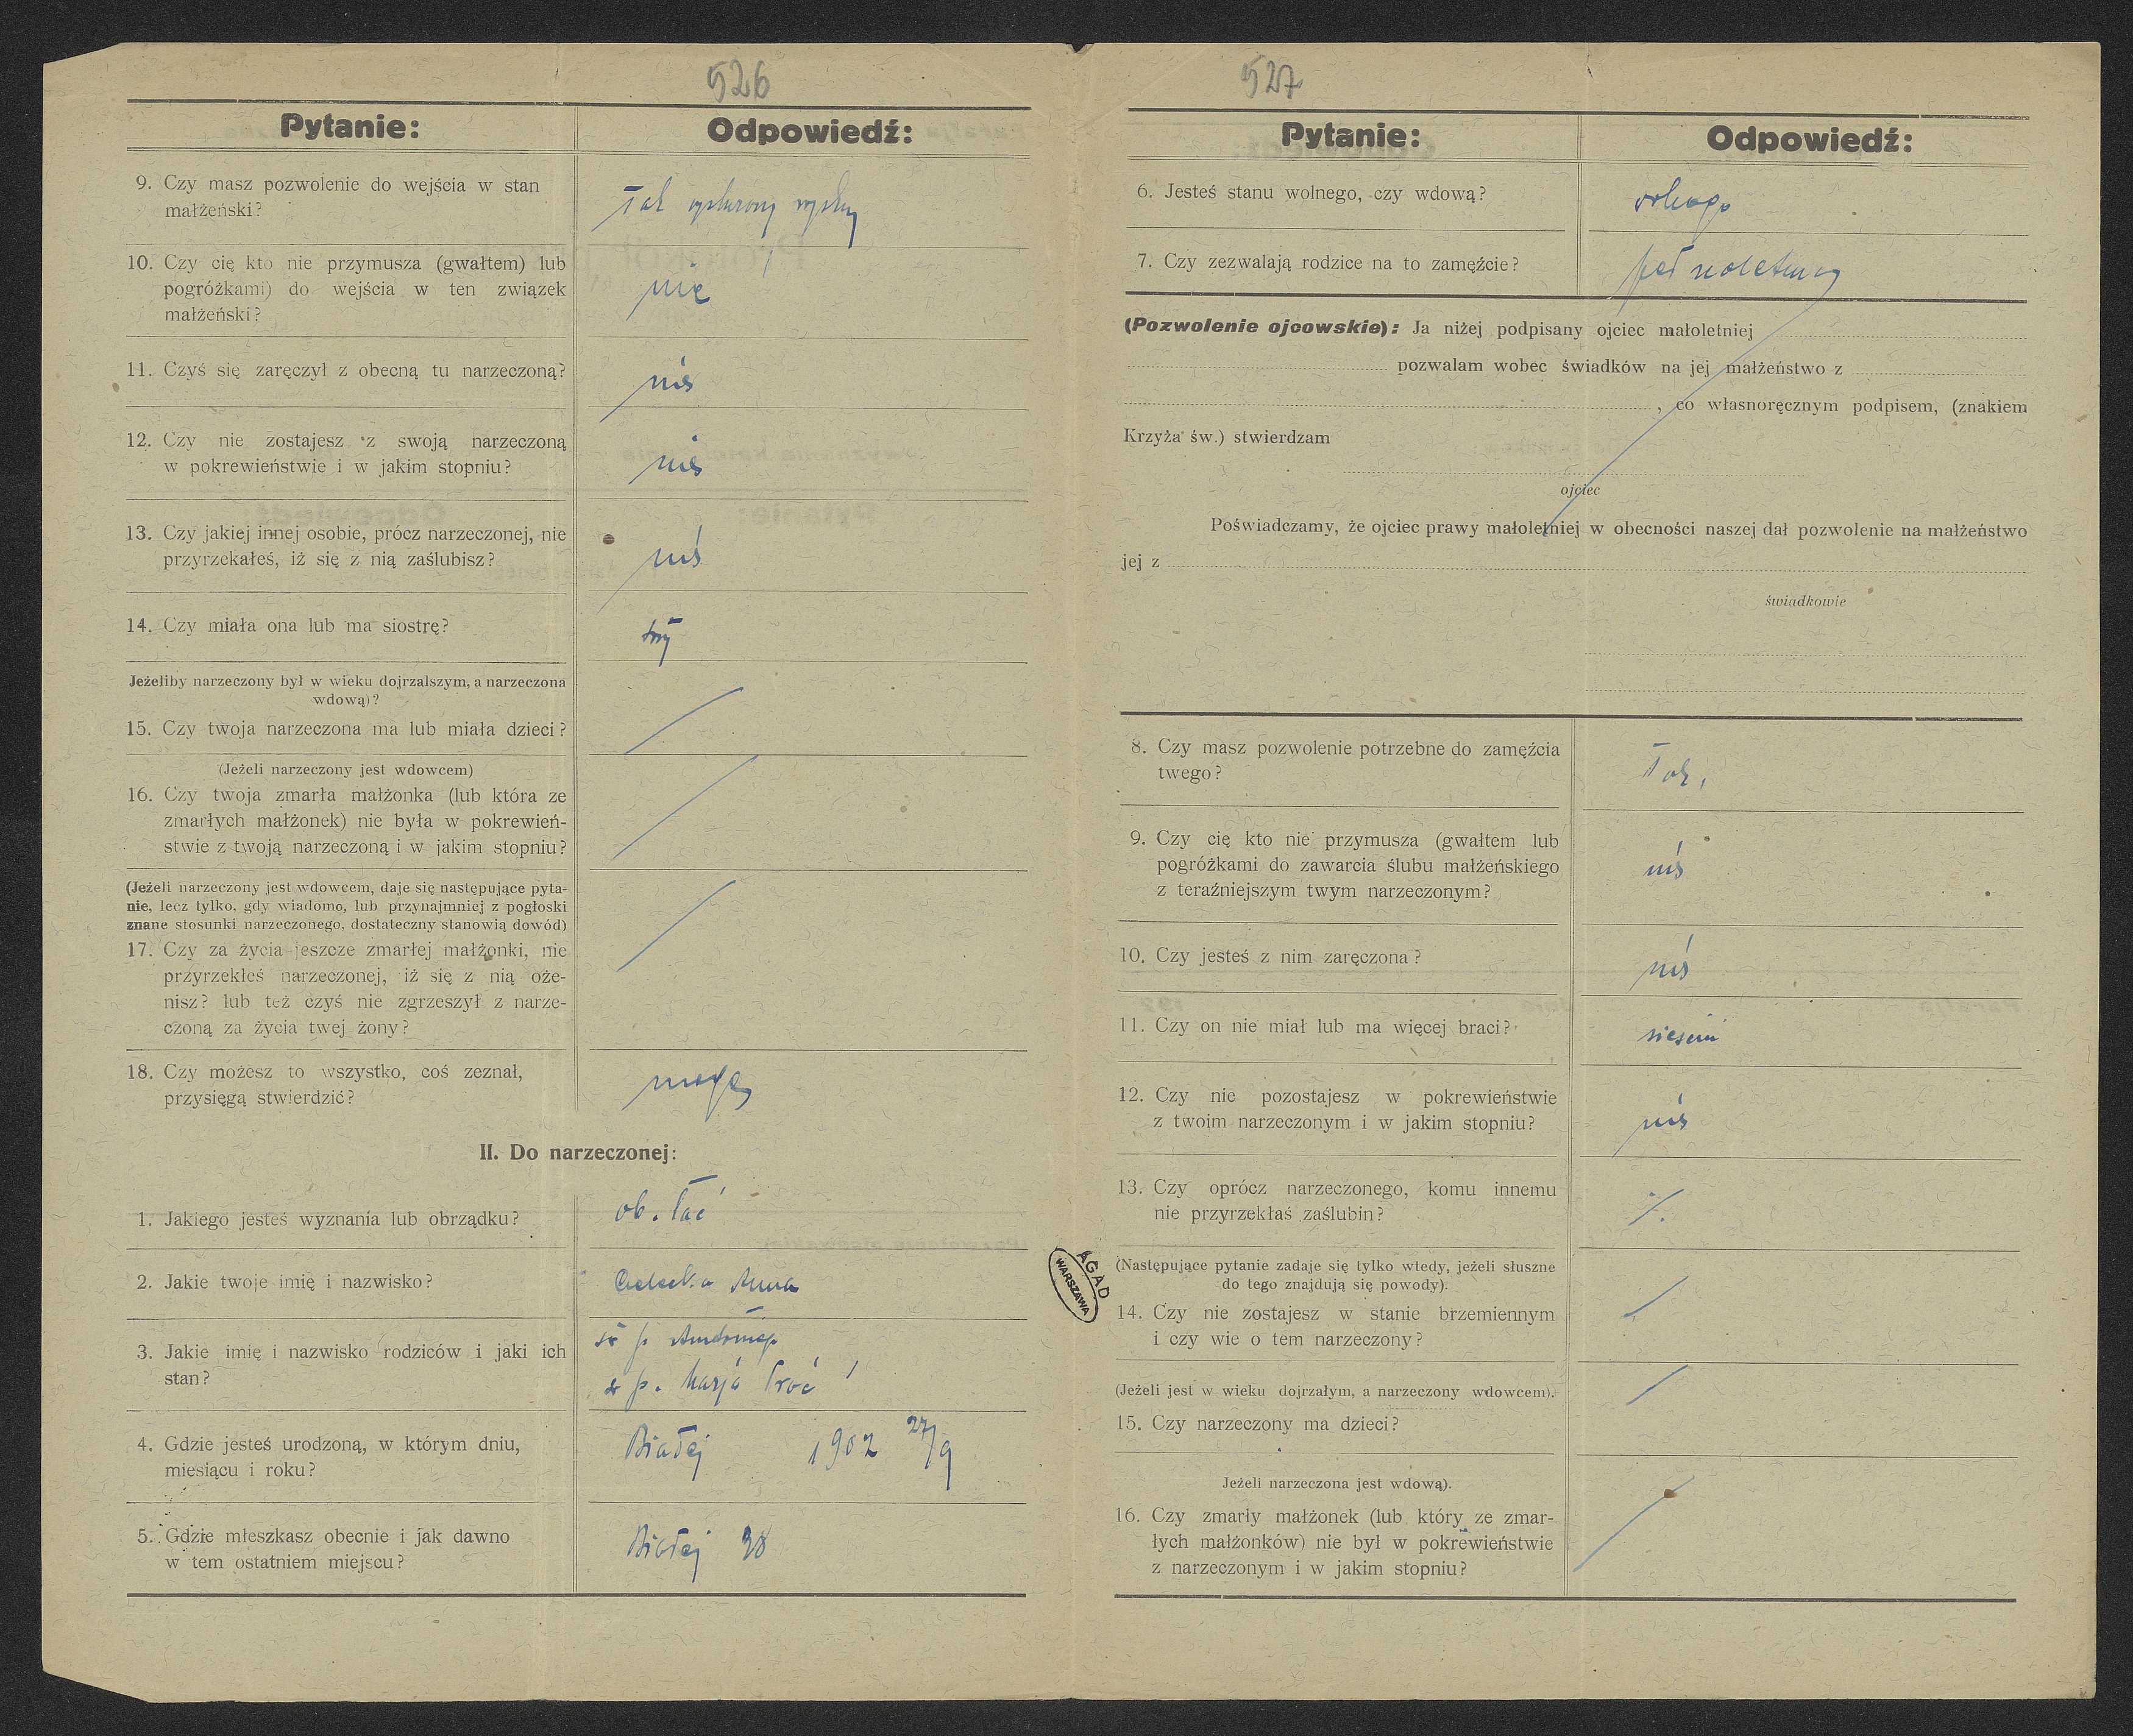 526
Pytanie:
Odpowiedź:
9. Czy masz pozwolenie do wejścia w stan
małżeński?
Tak
10. Czy cię kto nie przymusza (gwałtem) lub
pogróżkami) do wejścia w ten związek
małżeński?
nie
11. Czyś się zaręczył z obecną tu narzeczoną?
nie
12. Czy nie zostajesz z swoją narzeczoną
w pokrewieństwie i w jakim stopniu?
nie
13. Czy jakiej innej osobie, prócz narzeczonej, nie
przyrzekałeś, iż się z nią zaślubisz?
nie
14. Czy miała ona lub ma siostrę?
Jeżeliby narzeczony był w wieku dojrzalszym, a narzeczona
wdową)?
15. Czy twoja narzeczona ma lub miała dzieci?
(Jeżeli narzeczony jest wdowcem)
16. Czy twoja zmarła małżonka (lub która ze
zmarłych małżonek) nie była w pokrewień-
stwie z twoją narzeczoną i w jakim stopniu?
(Jeżeli narzeczony jest wdowcem, daje się następujące pyta-
nie, lecz tylko, gdy wiadomo, lub przynajmniej z pogłoski
znane stosunki narzeczonego, dostateczny stanowią dowód)
17. Czy za życia jeszcze zmarłej małżonki, nie
przyrzekłeś narzeczonej, iż się z nią oże-
nisz? lub też czyś nie zgrzeszył z narze-
czoną za życia twej żony?
18. Czy możesz to wszystko, coś zeznał,
przysięgą stwierdzić?
mogę
II. Do narzeczonej:
1. Jakiego jesteś wyznania lub obrządku?
ob. łać
2. Jakie twoje imię i nazwisko?
Anna
3. Jakie imię i nazwisko rodziców i jaki ich
stan?
ś p. Antoniego
ś p. Marja
4. Gdzie jesteś urodzoną, w którym dniu,
miesiącu i roku?
Białej 1902 27/9
5. Gdzie mieszkasz obecnie i jak dawno
w tem ostatniem miejscu?
Białej 38
527
Pytanie:
Odpowiedź:
6. Jesteś stanu wolnego, czy wdową?
wolnego
7. Czy zezwalają rodzice na to zamęźcie?
pełnoletnia
(Pozwolenie ojcowskie): Ja niżej podpisany ojciec małoletniej
pozwalam wobec świadków na jej małżeństwo z
, co własnoręcznym podpisem, (znakiem
Krzyża św.) stwierdzam
ojciec
Poświadczamy, że ojciec prawy małoletniej w obecności naszej dał pozwolenie na małżeństwo
jej z
świadkowie
8. Czy masz pozwolenie potrzebne do zamęźcia
twego?
Tak,
9. Czy cię kto nie przymusza (gwałtem lub
pogróżkami do zawarcia ślubu małżeńskiego
z teraźniejszym twym narzeczonym?
nie
10. Czy jesteś z nim zaręczona?
nie
11. Czy on nie miał lub ma więcej braci?
12. Czy nie pozostajesz w pokrewieństwie
z twoim narzeczonym i w jakim stopniu?
nie
13. Czy oprócz narzeczonego, komu innemu
nie przyrzekłaś zaślubin?
(Następujące pytanie zadaje się tylko wtedy, jeżeli słuszne
do tego znajdują się powody).
14. Czy nie zostajesz w stanie brzemiennym
i czy wie o tem narzeczony?
(Jeżeli jest w wieku dojrzałym, a narzeczony wdowcem).
15. Czy narzeczony ma dzieci?
Jeżeli narzeczona jest wdową).
16. Czy zmarły małżonek (lub który ze zmar-
łych małżonków) nie był w pokrewieństwie
z narzeczonym i w jakim stopniu?
AGAD
WARSZAWA